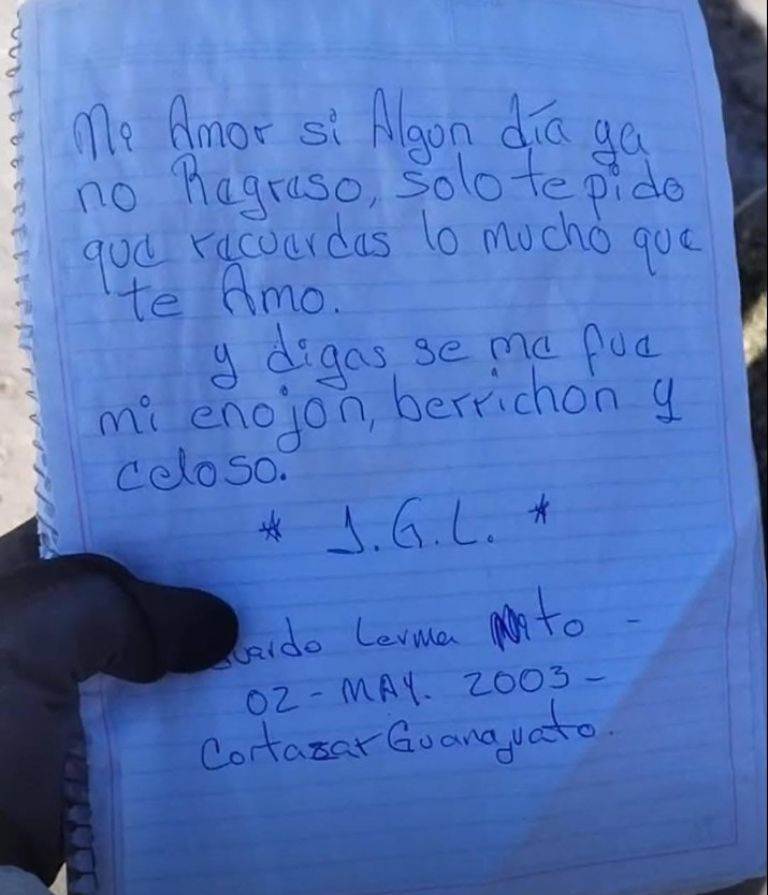 Mi Amor si Algun día ya
no Regreso, solo te pido
que recuerdes lo mucho que
te Amo.
y digas se me fue
mi enojon, berrichon y
celoso.
* J.G.L. *
Lerma -
02 - MAY. 2003 -
Cortazar Guanajuato.